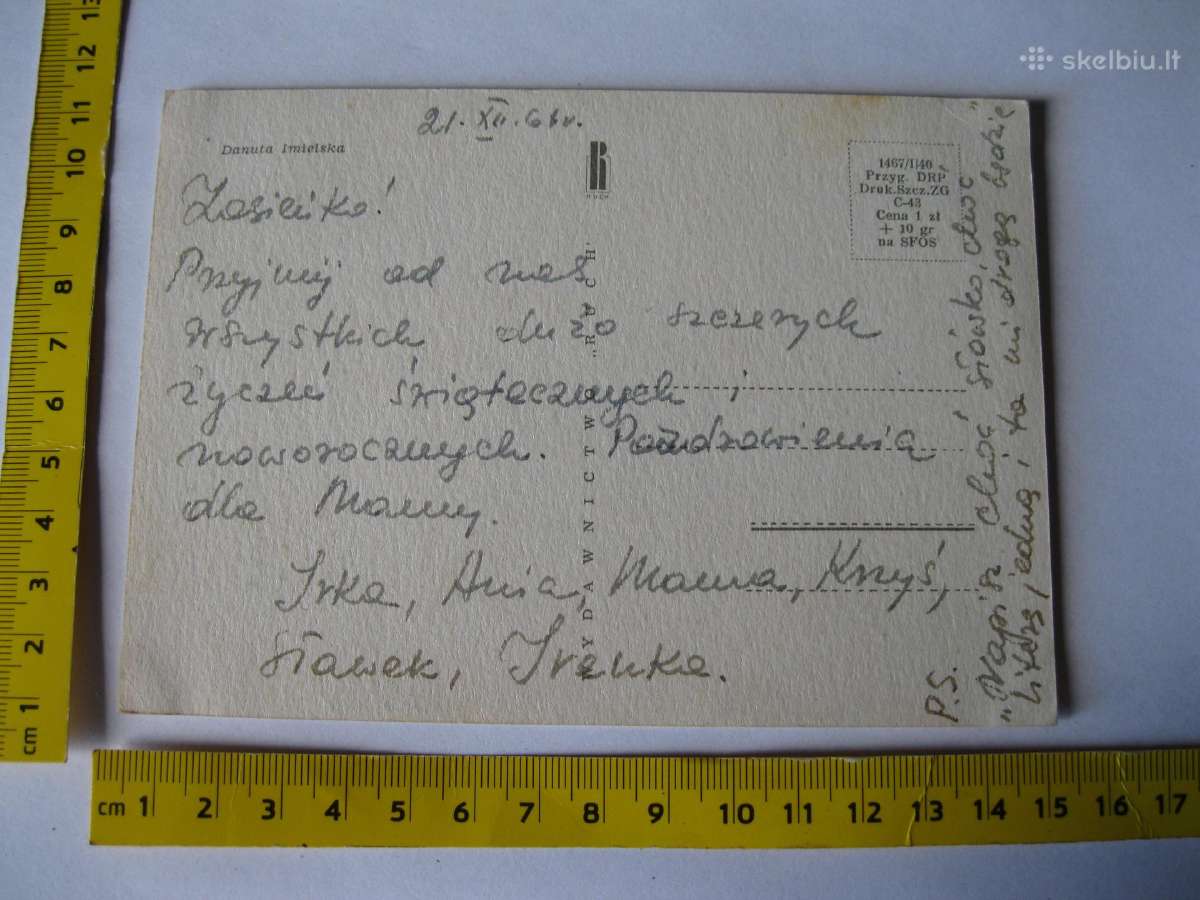 skelbiu.lt
21. XII. 61 r.
Danuta Imielska
RUCH
1467/I/40
Przyg. DRP
Druk.Szcz.ZG
C-43
Cena 1 zł
+ 10 gr
na SFOS
Zosieńko!
Przyjmij od nas
wszystkich dużo szczerych
życzeń świątecznych i
noworocznych. Pozdrowienia
dla Mamy.
Irka, Ania, Mama, Krzyś,
Sławek, Irenka.
WYDAWNICTWO „RUCH"
P.S.
„Napisz choć słówko, choć
literę jedną, i ta mi drogą będzie"
cm 1 2 3 4 5 6 7 8 9 10 11 12 13
cm 1 2 3 4 5 6 7 8 9 10 11 12 13 14 15 16 17